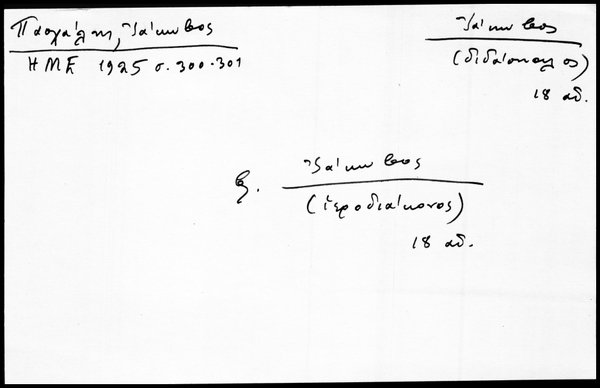 Πασχάλης, Ἰάκωβος
ΗΜΕ 1925 σ. 300-301
Ἰάκωβος
(διδάσκαλος)
18 αἰ.
β. Ἰάκωβος
(ἱεροδιάκονος)
18 αἰ.